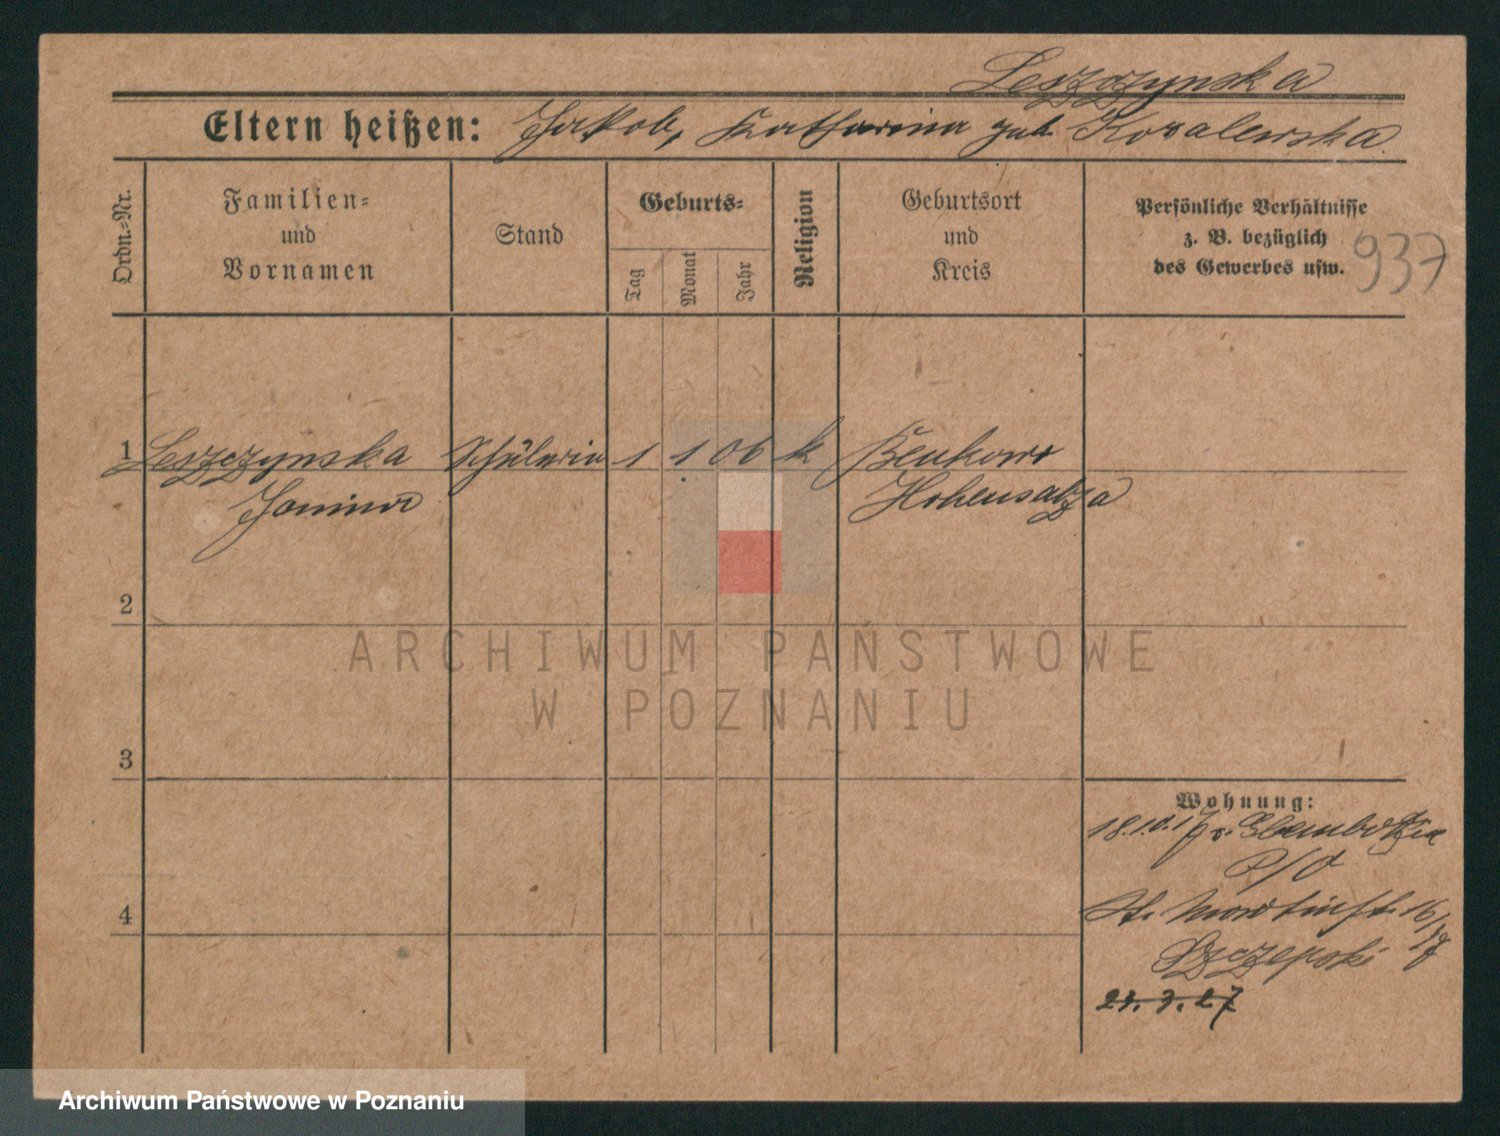 Leszczynska
Eltern heißen: Jakob, Katharina geb. Kovalewska
Ordn.-Nr.
Familien-
und
Vornamen
Stand
Geburts-
Tag
Monat
Jahr
Religion
Geburtsort
und
Kreis
Persönliche Verhältnisse
z. B. bezüglich
des Gewerbes usw.
937
1 Leszczynska Schülerin 1 1 06 k
Janina Hohensalza
2
ARCHIWUM PAŃSTWOWE
W POZNANIU
3
Wohnung:
18.10.17 v.
P/O
St. Martinst. 16/17
Szczepski
23.3.27
4
Archiwum Państwowe w Poznaniu